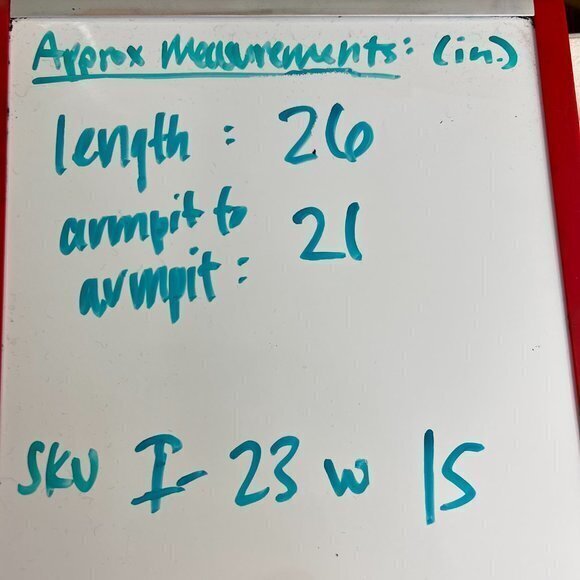 Approx Measurements: (in.)
length: 26
armpit to
armpit: 21
SKU I-23 w 15